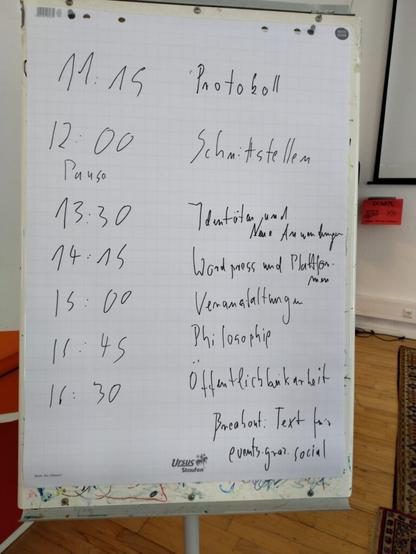 11:15 Protokoll
12:00 Schnittstellen
Pause
13:30 Identitäten und
Neue Anwendungen
14:15 Wordpress und Plattfor-
men
15:00 Veranstaltungen
15:45 Philosophie
16:30 Öffentlichkeitsarbeit
Breakout: Text für
events.graz.social
Ursus
Staufen